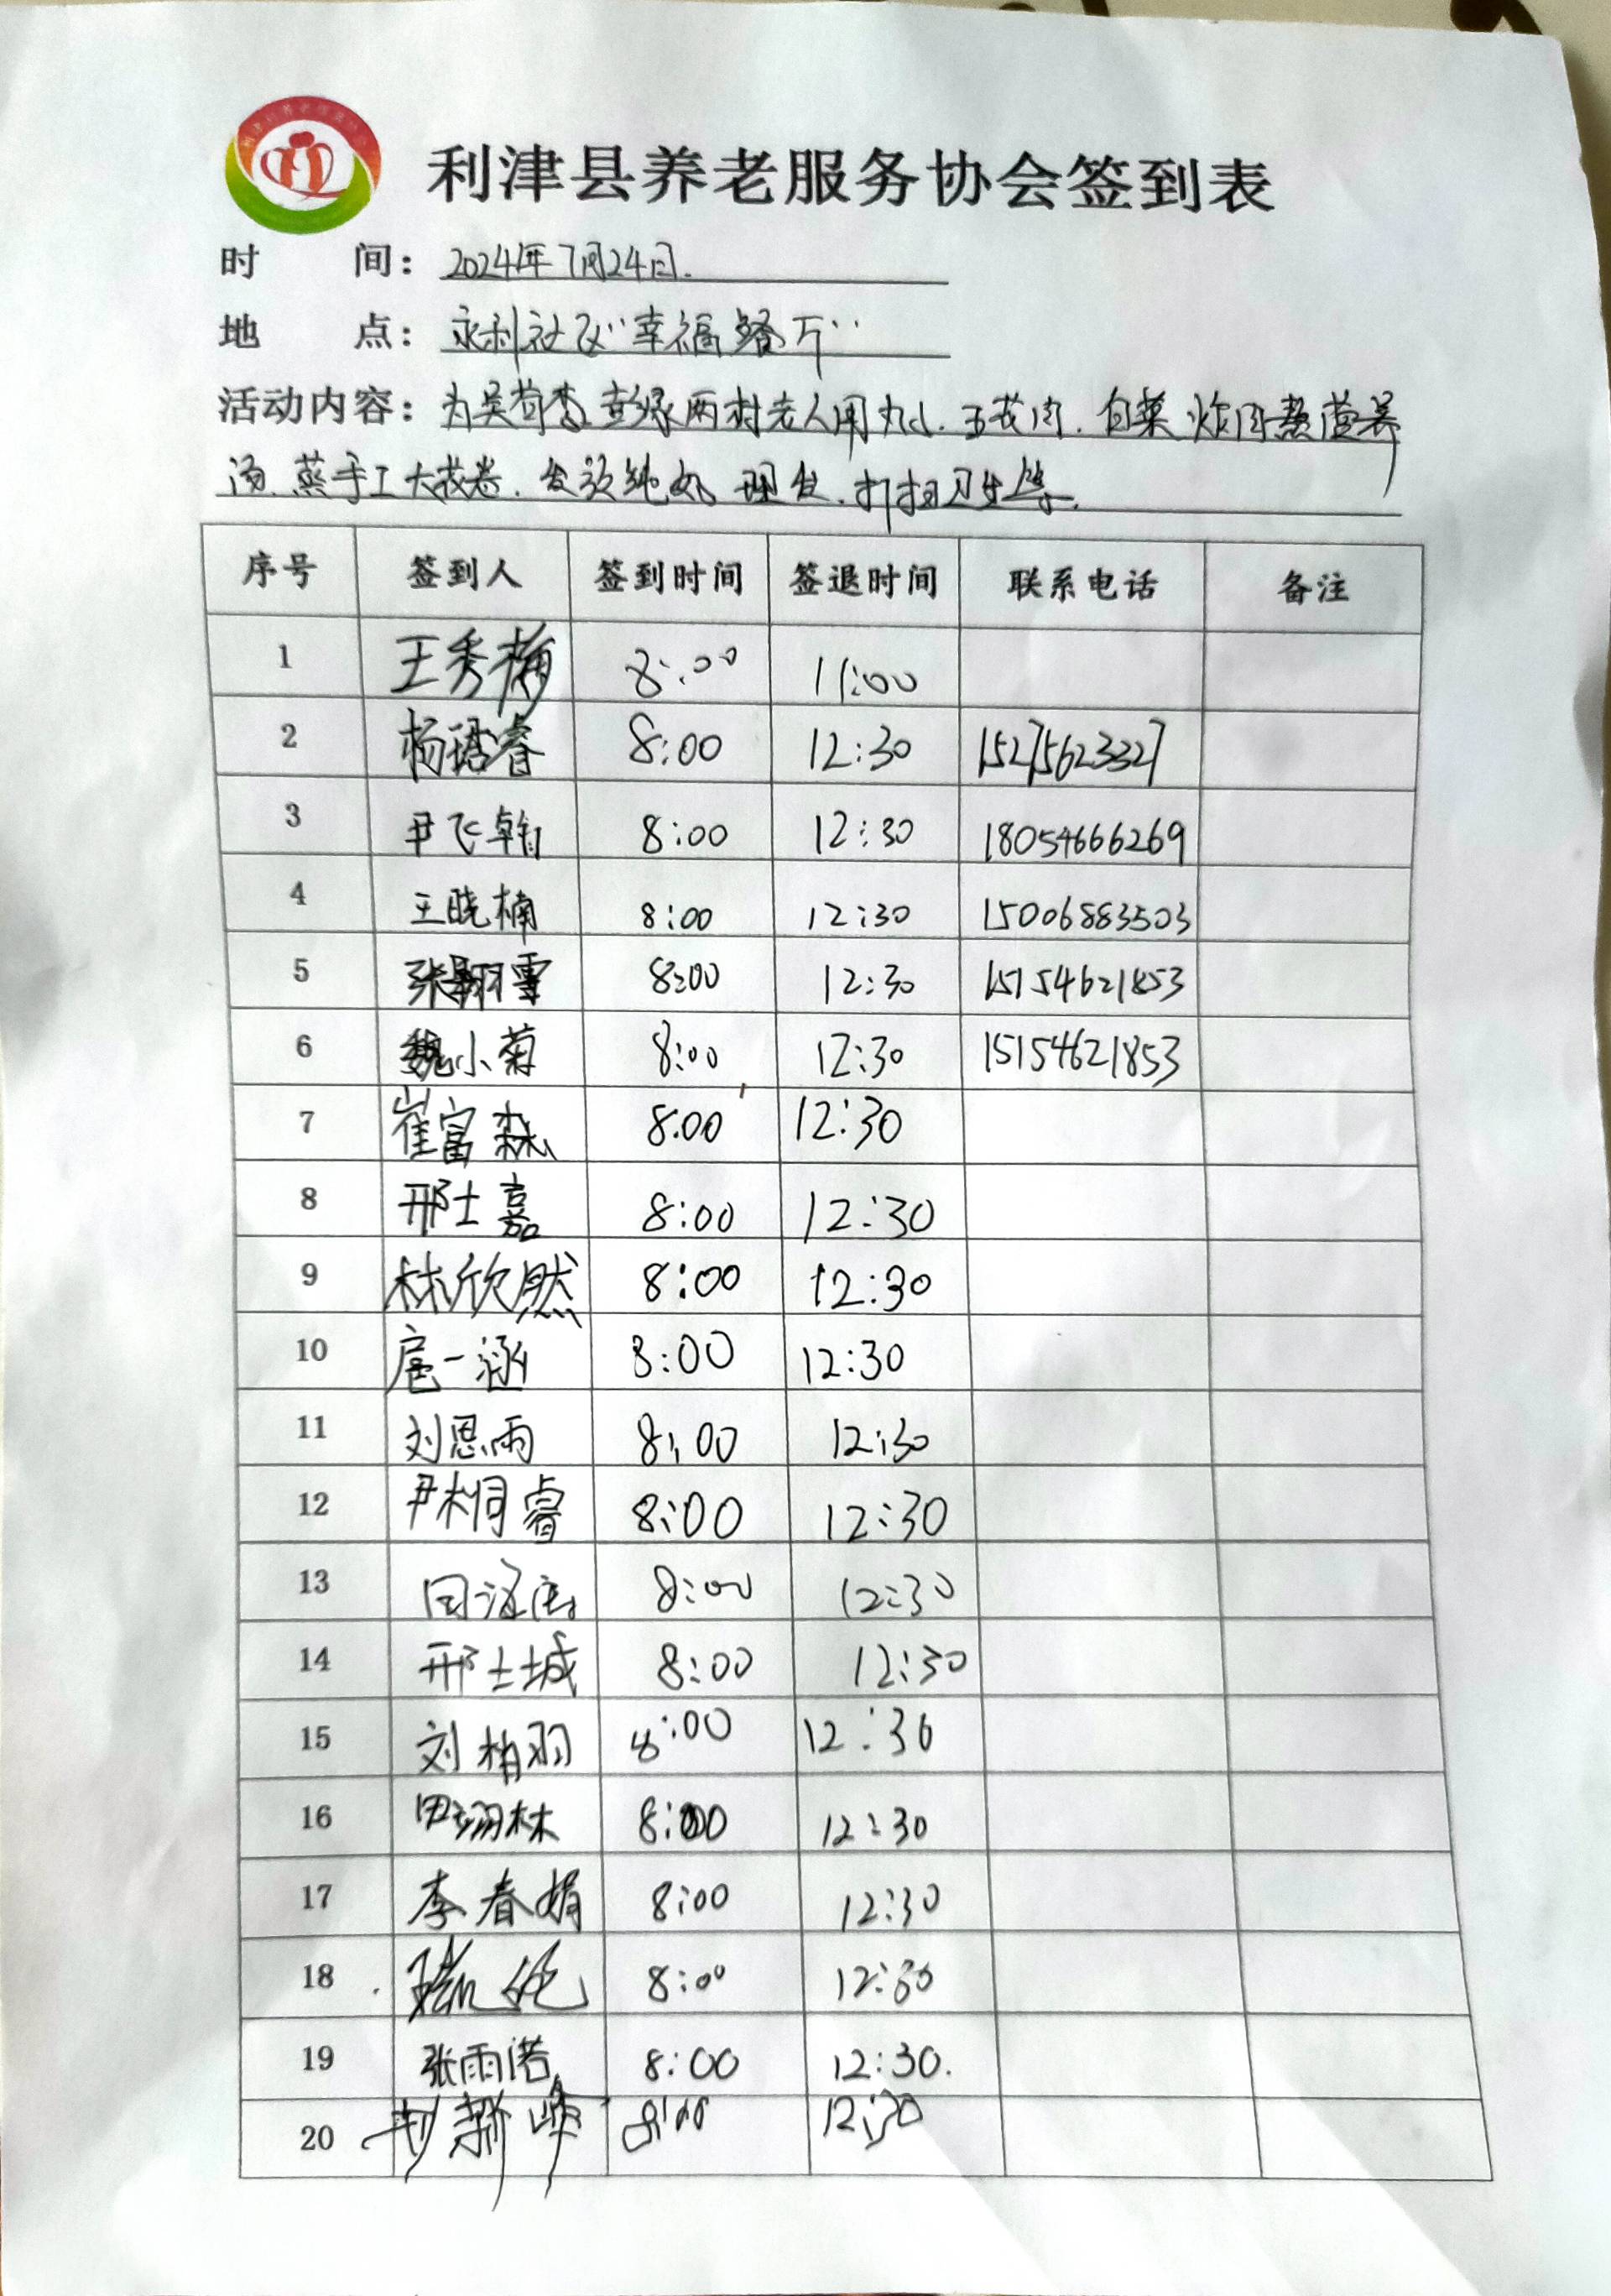 利津县养老服务协会签到表
时 间：2024年7月24日.
地 点：永利社区“幸福餐厅”
活动内容：为吴苟李、彭家两村老人用丸小、五花肉、白菜、炸肉熬营养
汤、蒸手工大花卷、发放纯奶、理发、打扫卫生等.
序号 签到人 签到时间 签退时间 联系电话 备注
1 王秀梅 8:00 11:00
2 杨琇睿 8:00 12:30 15275623327
3 尹飞翰 8:00 12:30 18054666269
4 王晓楠 8:00 12:30 15006883503
5 张翙雪 8:00 12:30 15154621853
6 魏小菊 8:00 12:30 15154621853
7 崔富森 8:00 12:30
8 邢士嘉 8:00 12:30
9 林欣然 8:00 12:30
10 扈一涵 8:00 12:30
11 刘恩雨 8:00 12:30
12 尹桐睿 8:00 12:30
13 8:00 12:30
14 邢士城 8:00 12:30
15 刘柏羽 8:00 12:30
16 8:00 12:30
17 李春娟 8:00 12:30
18 8:00 12:30
19 张雨诺 8:00 12:30.
20 8:00 12:30